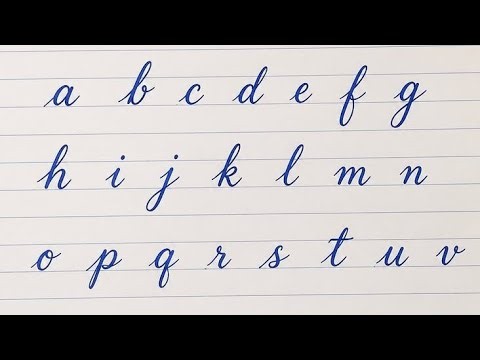 a b c d e f g
h i j k l m n
o p q r s t u v